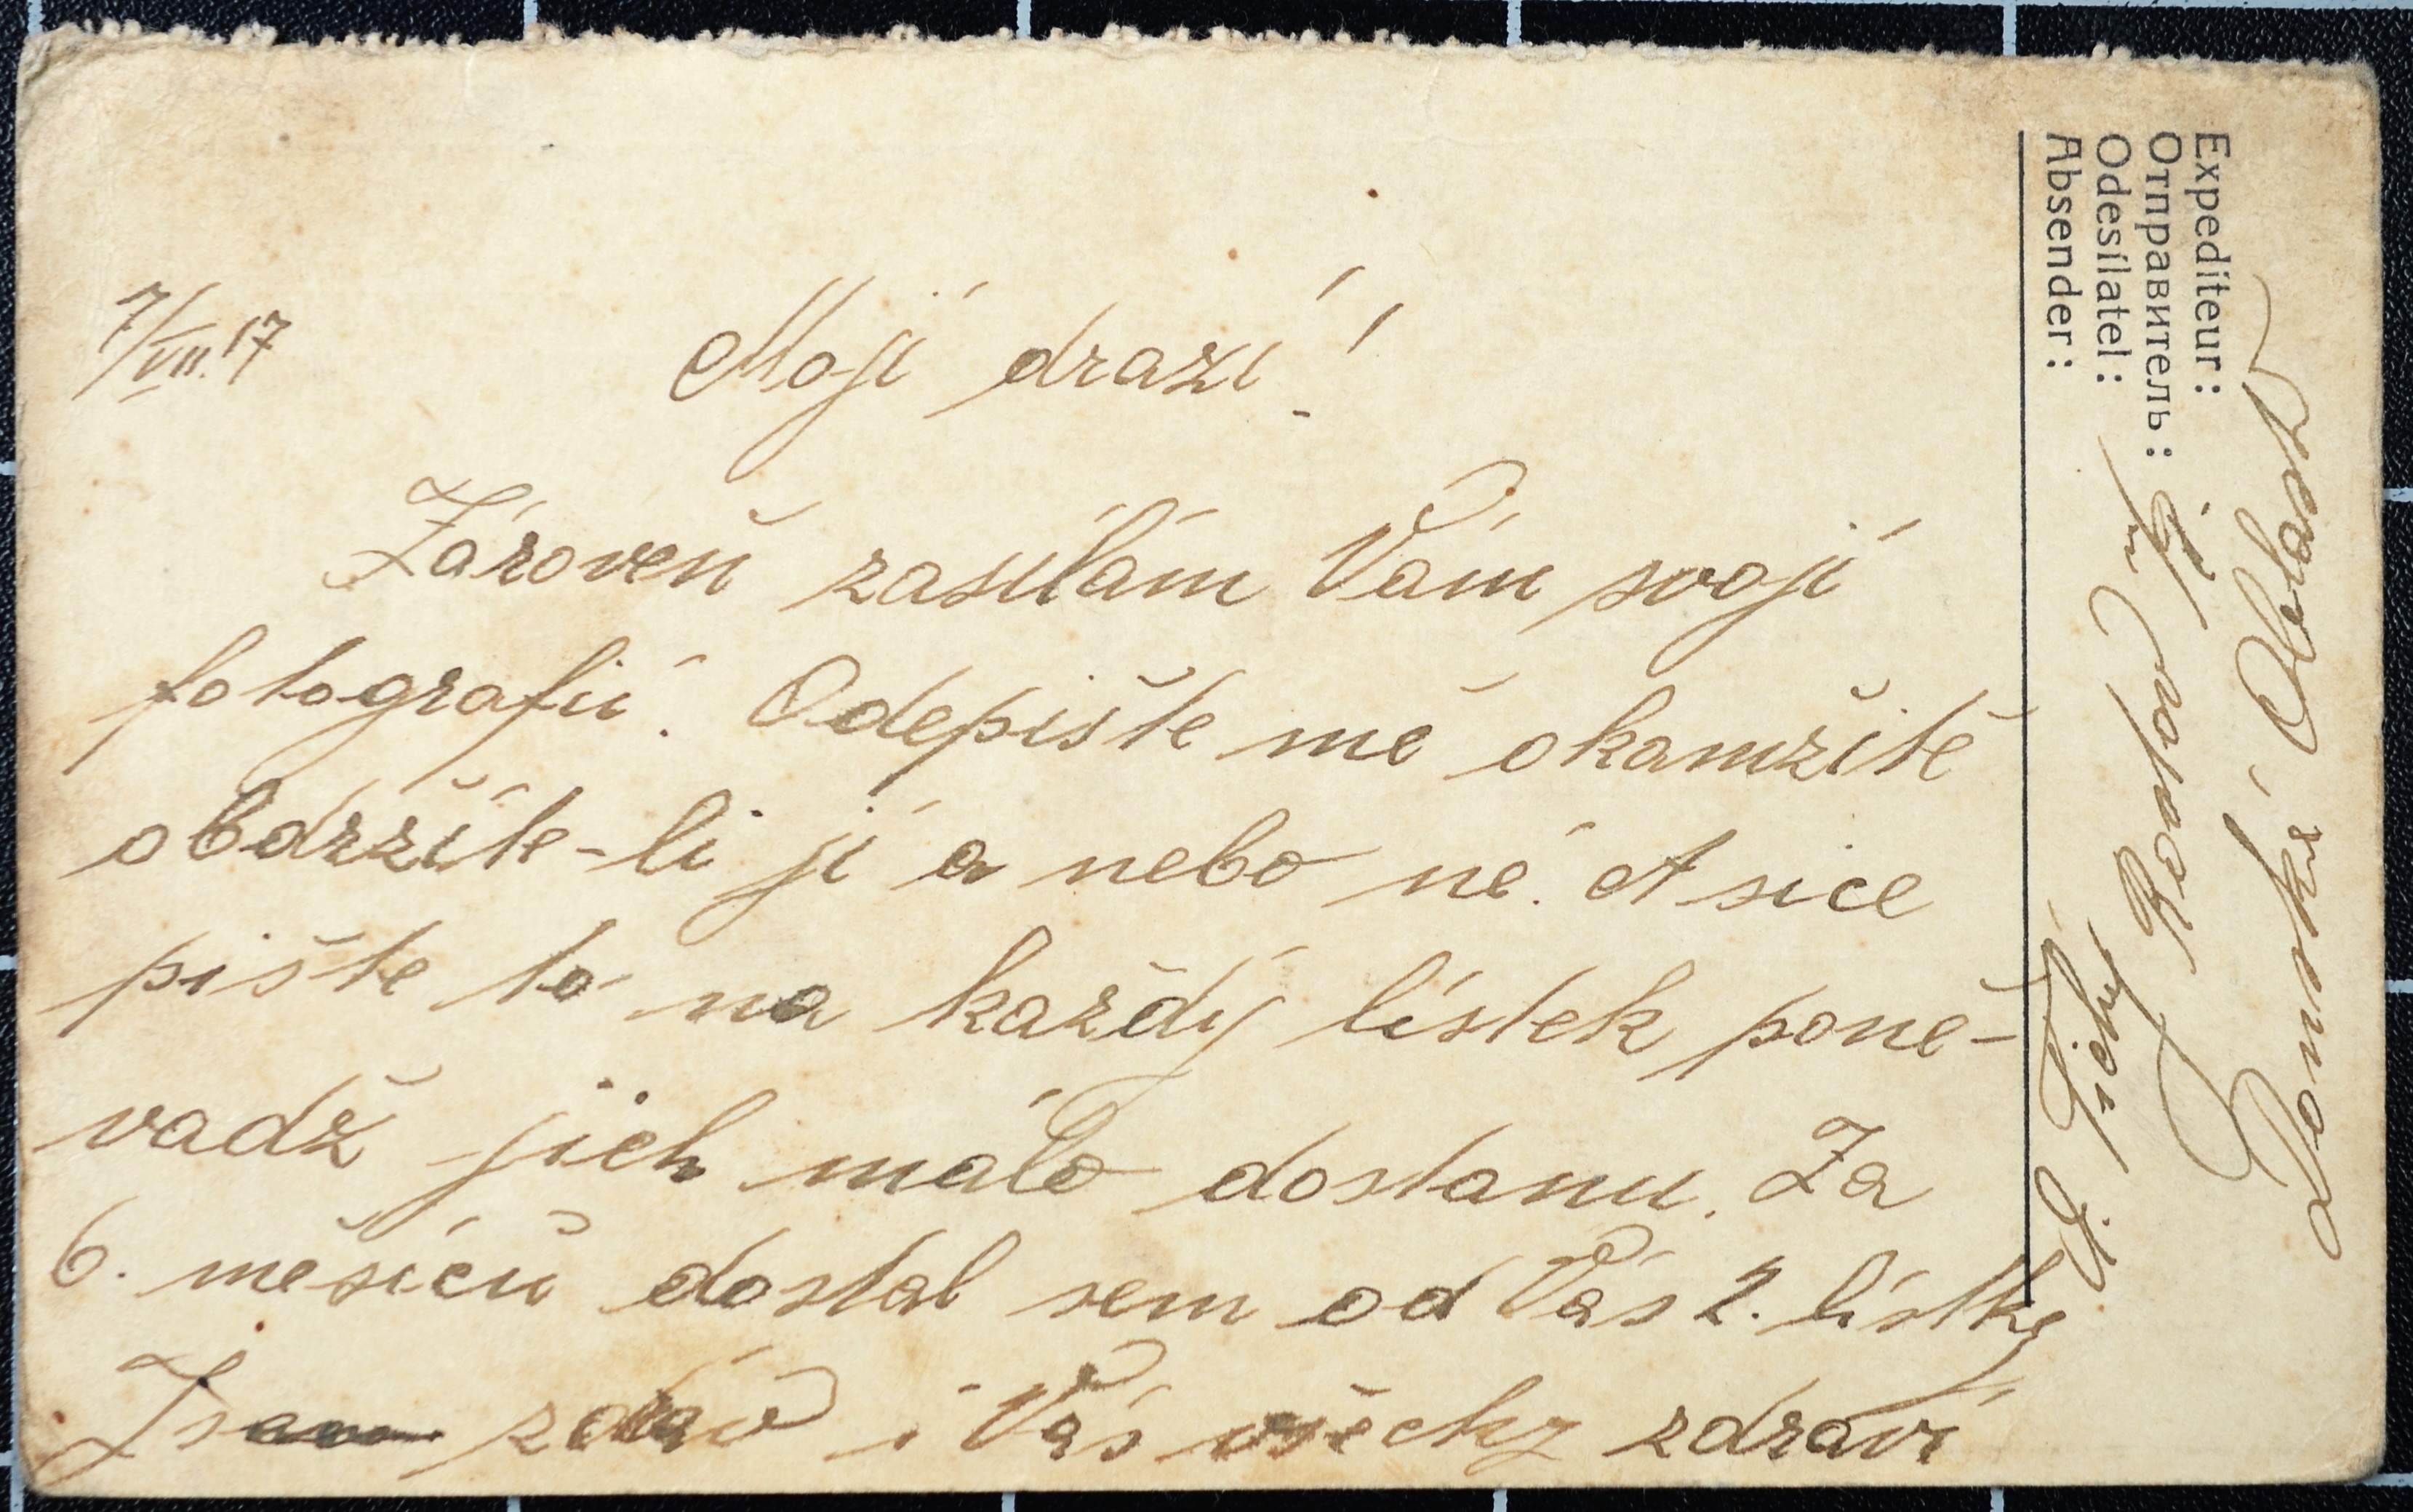 7/VII. 17
Moji drazí!
Zároveň zasílám Vám svojí
fotografií. Odepište mě okamžitě
obdržíte-li jí a nebo né. A sice
pište to na každý lístek poně-
vadž jich málo dostanu. Za
6. měsíců dostal sem od Vás 2. lístky
Jsem zdráv i Vás všechy zdraví
Expediteur:
Отправитель:
Odesílatel:
Absender: